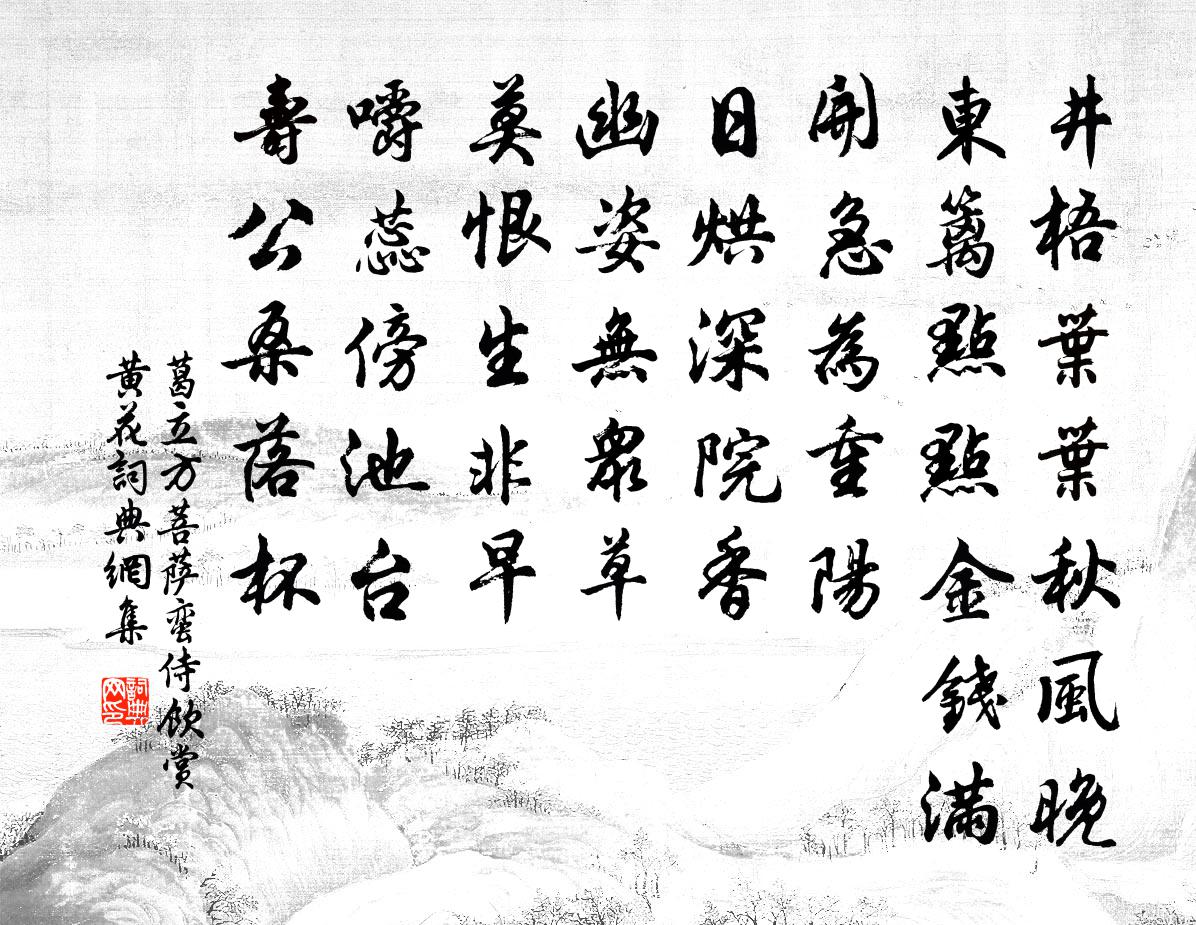 井梧葉葉秋風晚
東籬點點金錢滿
開急為重陽
日烘深院香
幽姿無衆草
莫恨生非早
嚼蕊傍池台
壽公桑落杯
葛立方菩薩蠻侍飲賞
黃花詞典網集
詞典
网印